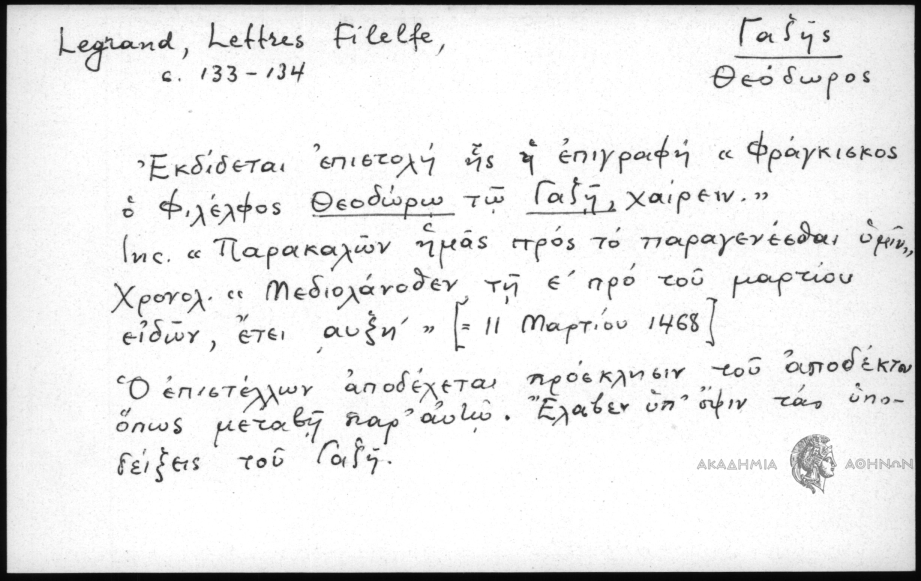 Legrand, Lettres Filelfe,
c. 133-134
Γαζῆς
Θεόδωρος
Ἐκδίδεται ἐπιστολή ἧς ἡ ἐπιγραφή « Φράγκισκος
ὁ Φιλέλφος Θεοδώρῳ τῷ Γαζῇ, χαίρειν. »
Inc. « Παρακαλῶν ἡμᾶς πρός τό παραγενέσθαι ὑμῖν,,
Χρονολ. « Μεδιολάνοθεν, τῇ ε΄ πρό τοῦ μαρτίου
εἰδῶν, ἔτει ͵αυξη΄ » [= 11 Μαρτίου 1468]
Ὁ ἐπιστέλλων ἀποδέχεται πρόσκλησιν τοῦ ἀποδέκτου
ὅπως μεταβῇ παρ' αὐτῷ. Ἔλαβεν ὑπ' ὄψιν τάς ὑπο-
δείξεις τοῦ Γαζῆ.
ΑΚΑΔΗΜΙΑ ΑΘΗΝΩΝ